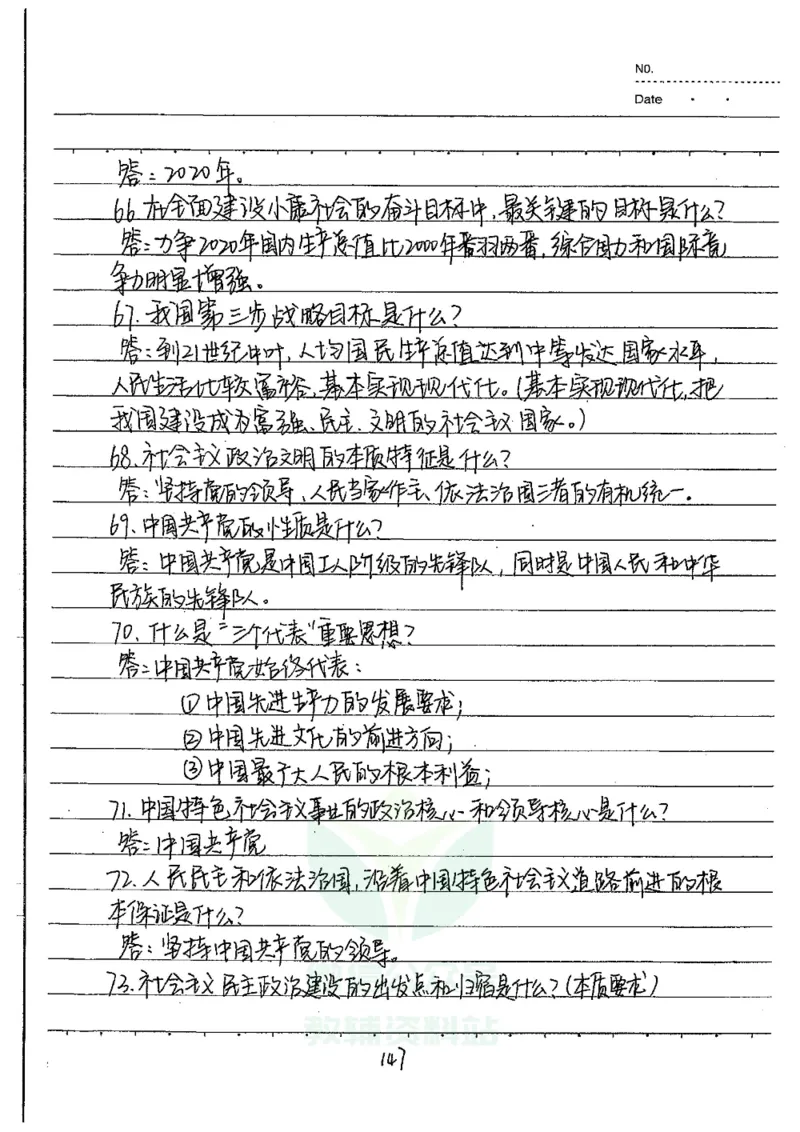 NO.
Date
答：2020年。
66.在全面建设小康社会的奋斗目标中，最关键的目标是什么？
答：力争2020年国内生产总值比2000年番两番，综合国力和国际竞
争力明显增强。
67.我国第三步战略目标是什么？
答：到21世纪中叶，人均国民生产总值达到中等发达国家水平，
人民生活比较富裕，基本实现现代化。（基本实现现代化，把
我国建设成为富强、民主、文明的社会主义国家。）
68.社会主义政治文明的本质特征是什么？
答：坚持党的领导、人民当家作主、依法治国三者的有机统一。
69.中国共产党的性质是什么？
答：中国共产党是中国工人阶级的先锋队，同时是中国人民和中华
民族的先锋队。
70.什么是“三个代表”重要思想？
答：中国共产党始终代表：
①中国先进生产力的发展要求；
②中国先进文化的前进方向；
③中国最广大人民的根本利益；
71.中国特色社会主义事业的政治核心和领导核心是什么？
答：中国共产党
72.人民民主和依法治国，沿着中国特色社会主义道路前进的根
本保证是什么？
答：坚持中国共产党的领导。
73.社会主义民主政治建设的出发点和归宿是什么？（本质要求）
教辅资料站
147